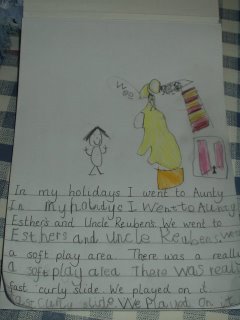 Wee
In my holidays I went to Aunty
In my holidays I went to Aunty
Esther's and Uncle Reubens. We went to
Esthers and Uncle Reubens. We went
a soft play area. There was a really
a soft play area There was really
fast curly slide. We played on it.
fast curly slide We Played on it